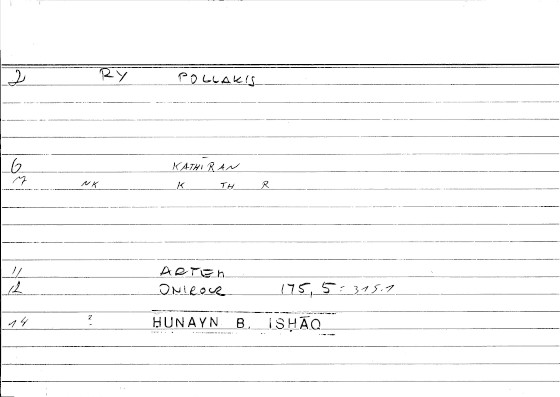 2 RY POLLAKIS
6 KATHĪRAN
7 NK K TH R
11 ARTEM
12 ONIROCR 175, 5 = 315.1
14 ? HUNAYN B. ISḤĀQ